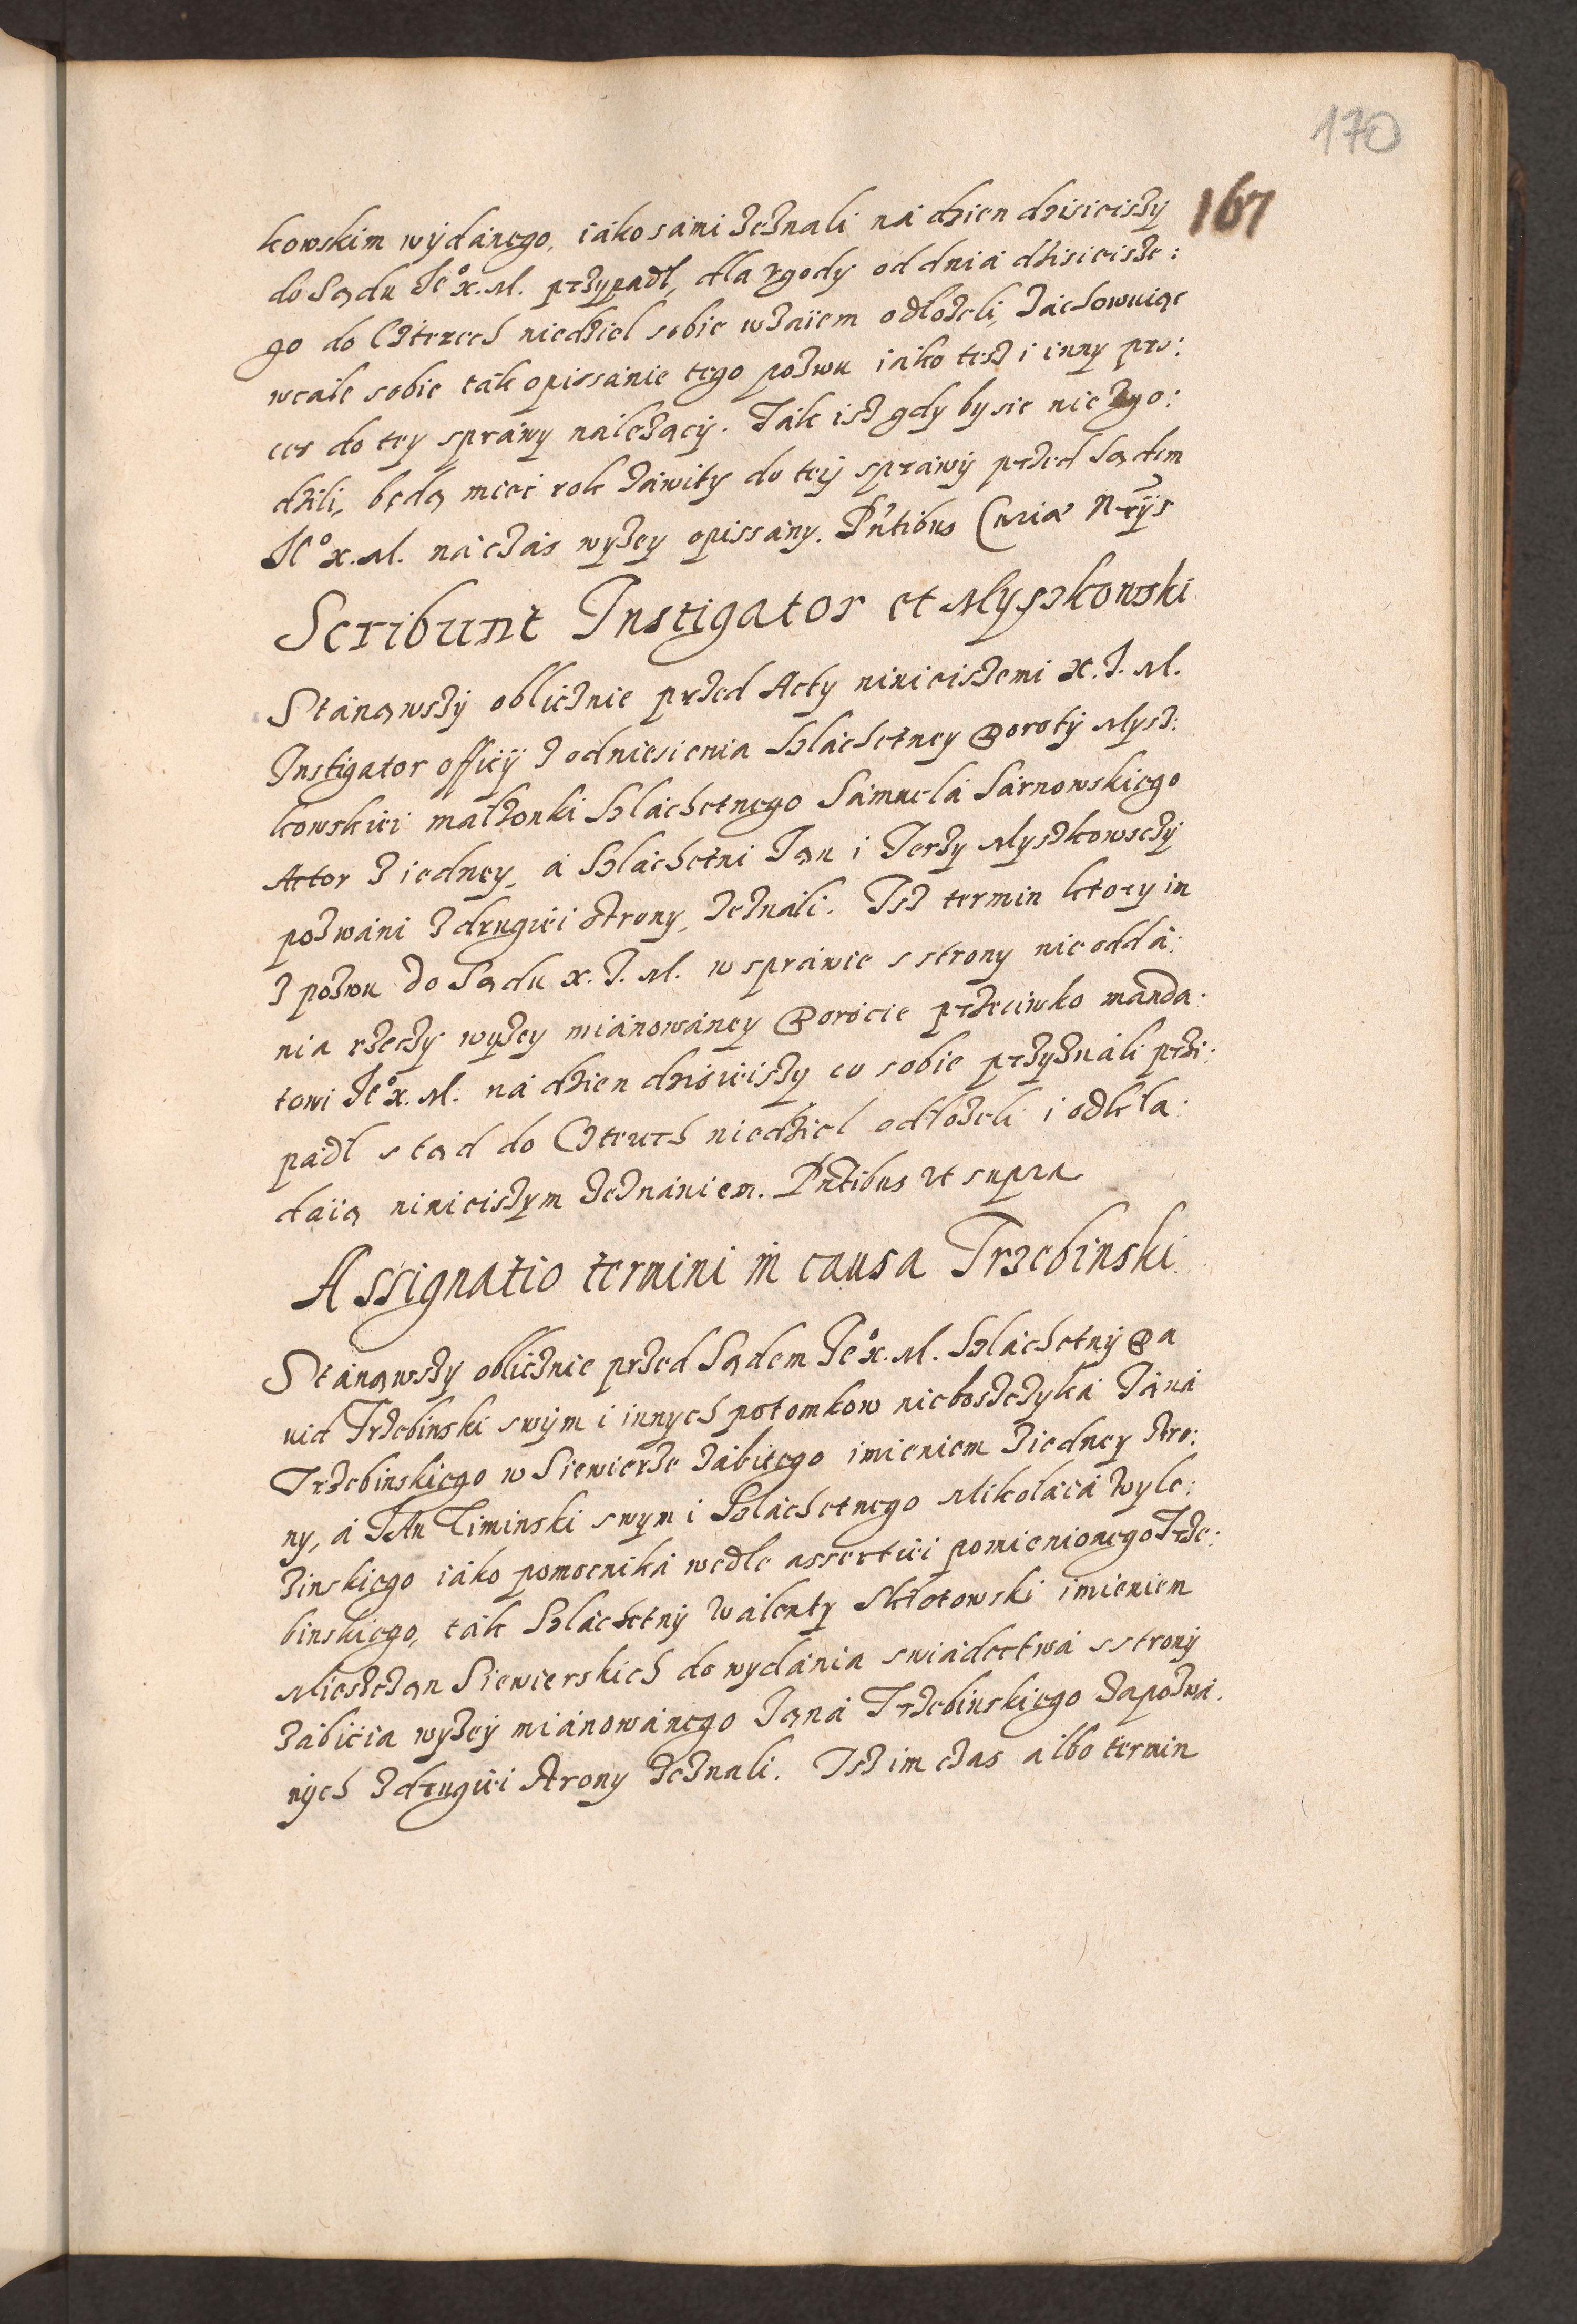 170
167
kowskim wydanego, iako sami zeznali na dzien dzisieiszy
do Sądu Jeo x. M. przypadł, dla zgody od dnia dzisieisze:
go do Cztrzech niedziel sobie wzaiem odłozeli, zachowuiąc
wcale sobie tak opissanie tego pozwu iako tesz i inny pro:
ces do tey sprawy nalezący. Tak isz gdy by sie nie zgo:
dzili, będą mieć rok zawity do teÿ sprawÿ przed Sądem
Jeo x. M. na czas wyzey opissany. Pntibus Curiæ Nrÿs
Scribunt Instigator et Myszkowski
Stanąwszÿ oblicznie przed Acty ninieiszemi X. J. M.
Instigator officÿ z odniesienia Szlachetney Doroty Mysz:
kowskiei małzonki Szlachetnego Samuela Sarnowskiego
Actor z iedney, a Szlachetni Jan i Jerzy Myszkowsczÿ
pozwani z drugiei strony, zeznali. Isz termin ktory im
z pozwu do Sądu x. J. M. w sprawie s strony nie odda:
nia rzeczÿ wyzey mianowaney Dorocie przeciwko manda:
towi Jeo x. M. na dzien dzisieiszy co sobie przyznali przi:
padł stąd do Czterech niedziel odłozeli i odkła:
daią ninieiszym zeznaniem. Pntibus ut supra
Assignatio termini in causa Trzebinski
Stanąwszy oblicznie przed Sądem Jeo x. M. Szlachetnÿ Da
uid Trzebinski swÿm i innych potomkow nieboszczyka Jana
Trzebinskiego w Siewierze zabitego imieniem z iedney stro:
ny, a Jan Ciminski swym i Szlachetnego Mikołaia Wyle:
zinskiego iako pomocnika wedle assertiei pomienionego Trze:
binskiego, tak Szlachetnÿ Walenty Skłotowski imieniem
Mieszczan Siewierskich do wydania swiadectwa s stronÿ
zabicia wyzeÿ mianowanego Jana Trzebinskiego zapozwa:
nÿch z drugiei strony zeznali. Isz im czas albo termin